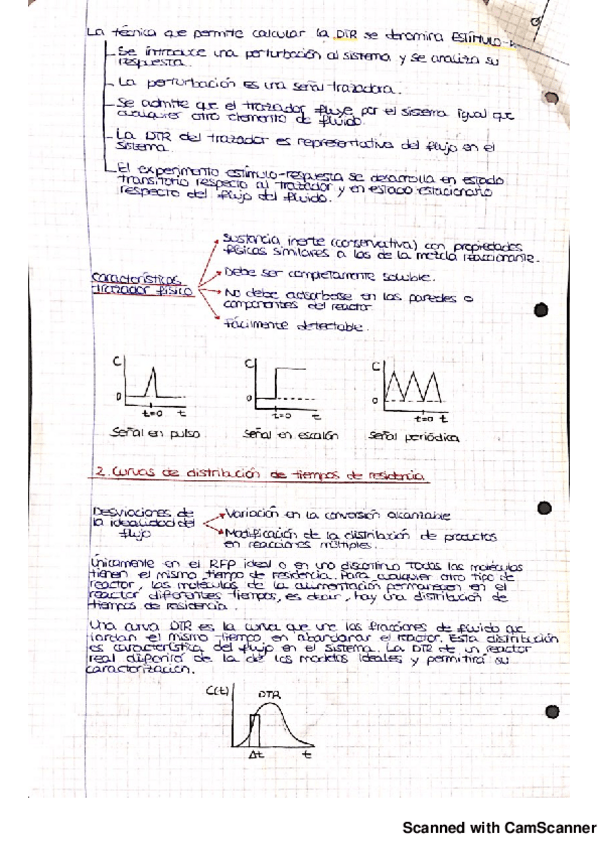 La técnica que permite calcular la DTR se denomina Estímulo-R
Se introduce una perturbación al sistema y se analiza su
respuesta.
La perturbación es una señal trazadora.
Se admite que el trazador fluye por el sistema igual que
cualquier otro elemento de fluido.
La DTR del trazador es representativa del flujo en el
sistema.
El experimento estímulo-respuesta se desarrolla en estado
transitorio respecto al trazador y en estado estacionario
respecto del flujo del fluido.
Características
trazador físico
Sustancia inerte (conservativa) con propiedades
físicas similares a las de la mezcla reaccionante.
Debe ser completamente soluble.
No debe adsorberse en las paredes o
componentes del reactor
Fácilmente detectable.
C
0
t=0 t
Señal en pulso
C
0
t=0 t
Señal en escalón
C
0
t=0 t
Señal periódica
2. Curvas de distribución de tiempos de residencia
Desviaciones de
la idealidad del
flujo
Variación en la conversión alcanzable
Modificación de la distribución de productos
en reacciones múltiples.
Únicamente en el RFP ideal o en uno discontinuo todas las moléculas
tienen el mismo tiempo de residencia. Para cualquier otro tipo de
reactor, las moléculas de la alimentación permanecen en el
reactor diferentes tiempos, es decir, hay una distribución de
tiempos de residencia.
Una curva DTR es la curva que une las fracciones de fluido que
tardan el mismo tiempo, en abandonar el reactor. Esta distribución
es característica del flujo en el sistema. La DTR de un reactor
real de la de los modelos ideales y permitirá su
caracterización.
C(t)
DTR
Δt t
Scanned with CamScanner